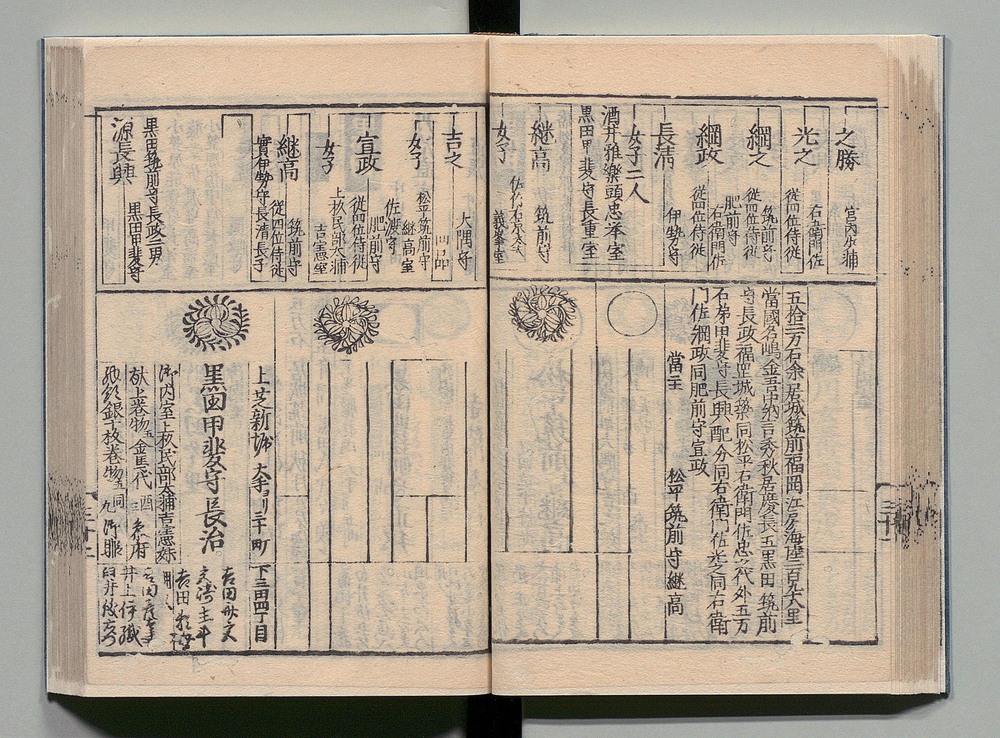 之勝
宮内少輔
光之
右衛門佐
従四位侍従
綱之
筑前守
従四位侍従
綱政
肥前守
右衛門佐
従四位侍従
長清
伊勢守
女子二人
酒井雅樂頭忠挙室
黒田甲斐守長重室
継高
筑前守
女子
佐竹右京大夫
義峯室
五拾二万石余居城筑前福岡江戸海陸三百九十八里
當國名嶋金吾中納言秀秋居慶長五黒田筑前
守長政福岡城築同松平右衛門佐忠之代外五万
石弟甲斐守長興配分同右衛門佐光之同右衛
門佐綱政同肥前守宣政
當主
松平筑前守継高
吉之
大隅守
女子
松平筑前守
継高室
宣政
佐渡守
肥前守
従四位侍従
女子
上杦民部大輔
吉憲室
継高
筑前守
従四位侍従
實伊勢守長清長子
黒田筑前守長政三男
源長興
黒田甲斐守
上芝新堀
大手ゟ三十町
下三田四丁目
黒田甲斐守長治
御内室上杦民部大輔吉憲妹
献上巻物五金馬代
吉田
吉田
井上
臼井